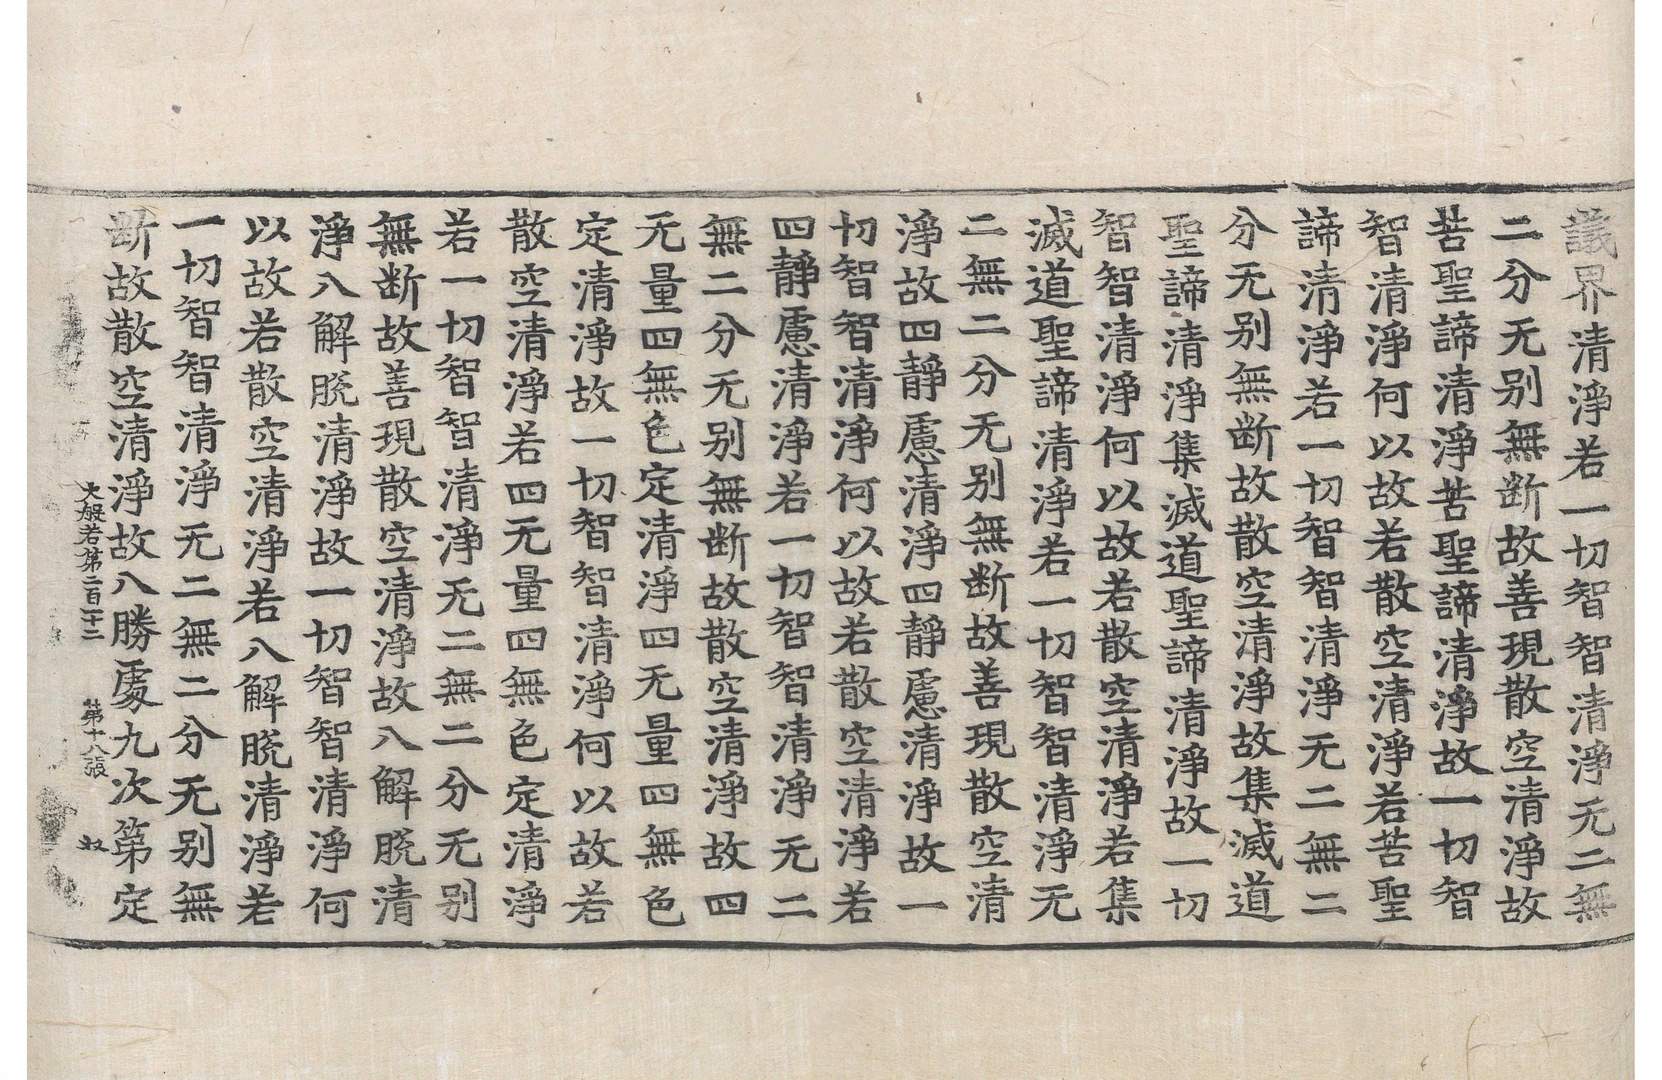 議界清淨若一切智智清淨无二無
二分无别無断故善現散空清淨故
苦聖諦清淨苦聖諦清淨故一切智
智清淨何以故若散空清淨若苦聖
諦清淨若一切智智清淨无二無二
分无别無断故散空清淨故集滅道
聖諦清淨集滅道聖諦清淨故一切
智智清淨何以故若散空清淨若集
滅道聖諦清淨若一切智智清淨无
二無二分无别無断故善現散空清
淨故四靜慮清淨四靜慮清淨故一
切智智清淨何以故若散空清淨若
四靜慮清淨若一切智智清淨无二
無二分无别無断故散空清淨故四
无量四無色定清淨四无量四無色
定清淨故一切智智清淨何以故若
散空清淨若四无量四無色定清淨
若一切智智清淨无二無二分无别
無断故善現散空清淨故八解脱清
淨八解脱清淨故一切智智清淨何
以故若散空清淨若八解脱清淨若
一切智智清淨无二無二分无别無
断故散空清淨故八勝處九次第定
大般若第二百一十二 第十八張 奴